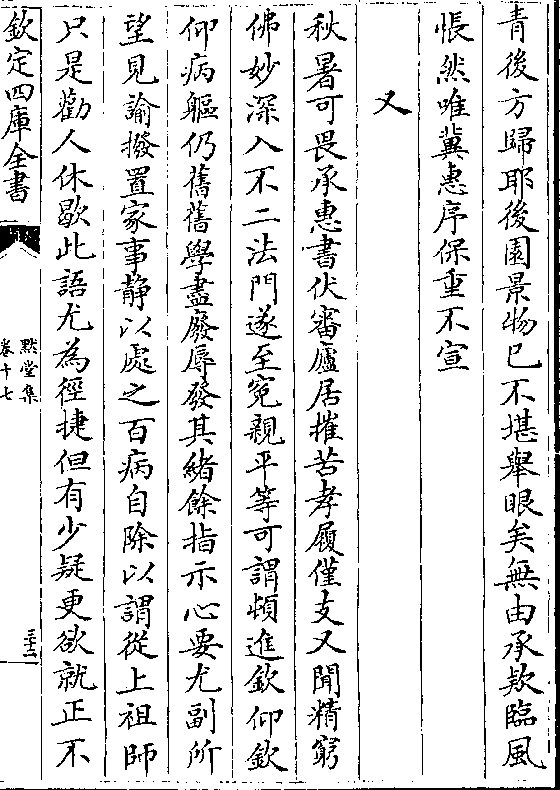 青後方歸耶後園景物已不堪舉眼矣無由承欵臨風
悵然唯冀惠序保重不宣
又
秋暑可畏承惠書伏審廬居摧苦孝履僅支又聞精窮
佛妙深入不二法門遂至寃親平等可謂頓進欽仰欽
仰病軀仍舊舊學盡廢辱發其緒餘指示心要尤副所
望見諭撥置家事静以處之百病自除以謂從上祖師
只是勸人休歇此語尤為徑捷但有少疑更欲就正不
欽定四庫全書
黙堂集
卷十七
三十二